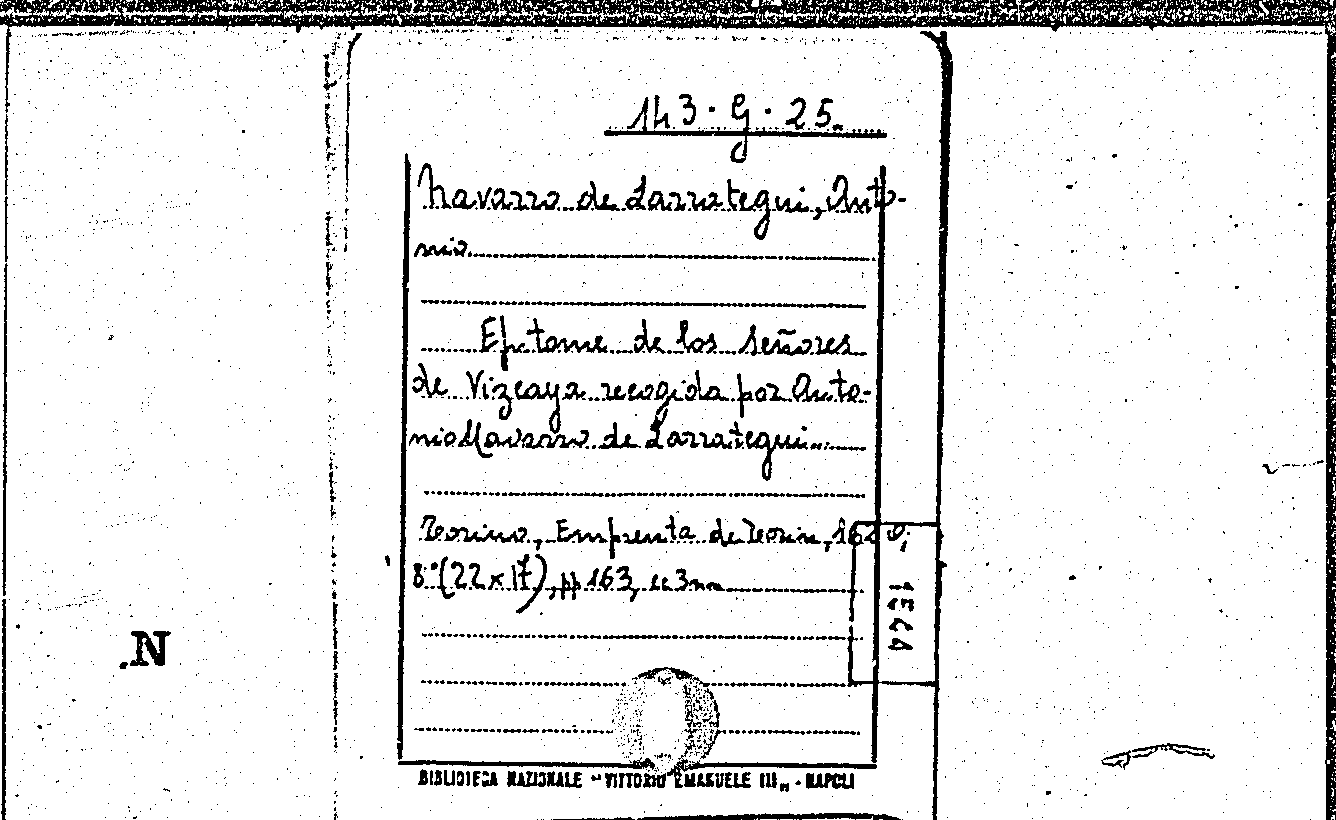 143. G. 25.
Navarro de Larrategui, Anto-
nio
Epitome de los señores
de Vizcaya recogida por Anto-
nio Navarro de Larrategui
Torino, Emprenta de Torin,
8° (22 x 17), pp 163, cc 3 nn
N.
BIBLIOTECA NAZIONALE "VITTORIO EMANUELE III„ - NAPOLI